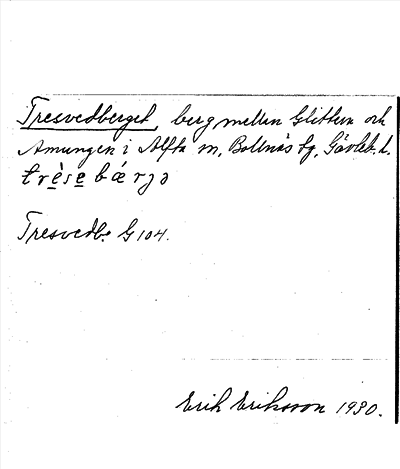 Tresvedberget, berg mellan Glitten och
Amungen i Alfta sn, Bollnäs fg, Gävleb. l.
trèse bǽrjə
Tresvedb. G 104.
Erik Eriksson 1930.